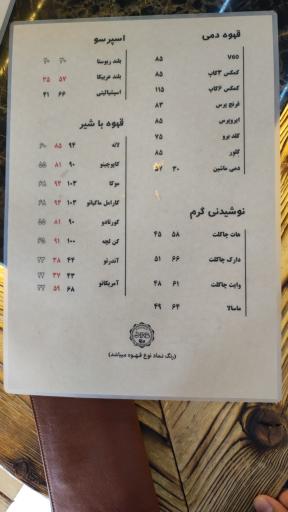 قهوه دمی
V60 ۸۵
کمکس ۳کاپ ۸۵
کمکس ۶کاپ ۱۱۵
فرنچ پرس ۸۳
ایروپرس ۸۵
کلد برو ۷۵
کلور ۸۵
دمی ماشین ۳۰ ۵۲
نوشیدنی گرم
هات چاکلت ۵۸ ۴۵
دارک چاکلت ۶۶ ۵۱
وایت چاکلت ۶۱ ۴۸
ماسالا ۶۴ ۴۹
اسپرسو
بلند ربوستا
بلند عربیکا ۵۷ ۳۵
اسپشیالیتی ۶۶ ۴۱
قهوه با شیر
لاته ۹۴ ۸۵
کاپوچینو ۹۰ ۸۱
موکا ۱۰۳ ۹۴
کارامل ماکیاتو ۱۰۳ ۹۴
کورتادو ۹۰ ۸۱
کن لچه ۱۰۰ ۹۱
آفدرتو ۴۴ ۳۸
۴۳ ۳۷
آمریکانو ۶۸ ۵۹
(رنگ نماد نوع قهوه میباشد)